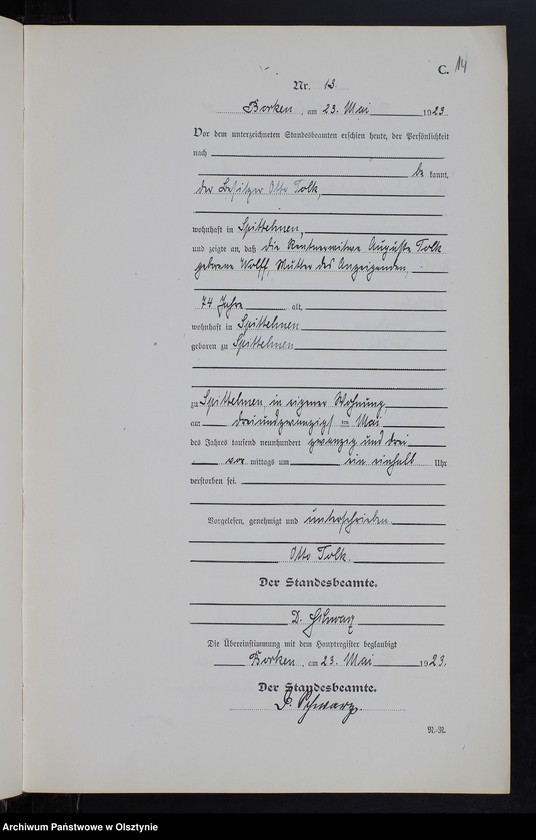 C. 14
Nr. 13.
Borken, am 23. Mai 1923
Vor dem unterzeichneten Standesbeamten erschien heute, der Persönlichkeit
nach
be kannt,
der Besitzer Otto Tolk,
wohnhaft in Spittehnen,
und zeigte an, daß die Rentnerwitwe Auguste Tolk
geborene Wolff, Mutter des Anzeigenden,
74 Jahre alt,
wohnhaft in Spittehnen
geboren zu Spittehnen
zu Spittehnen in eigener Wohnung,
am dreiundzwanzigsten Mai
des Jahres tausend neunhundert zwanzig und drei
vor mittags um ein einhalb Uhr
verstorben sei.
Vorgelesen, genehmigt und unterschrieben
Otto Tolk.
Der Standesbeamte.
D. Schwarz
Die Übereinstimmung mit dem Hauptregister beglaubigt
Borken, am 23. Mai 1923.
Der Standesbeamte.
D. Schwarz.
N.-N.
Archiwum Państwowe w Olsztynie